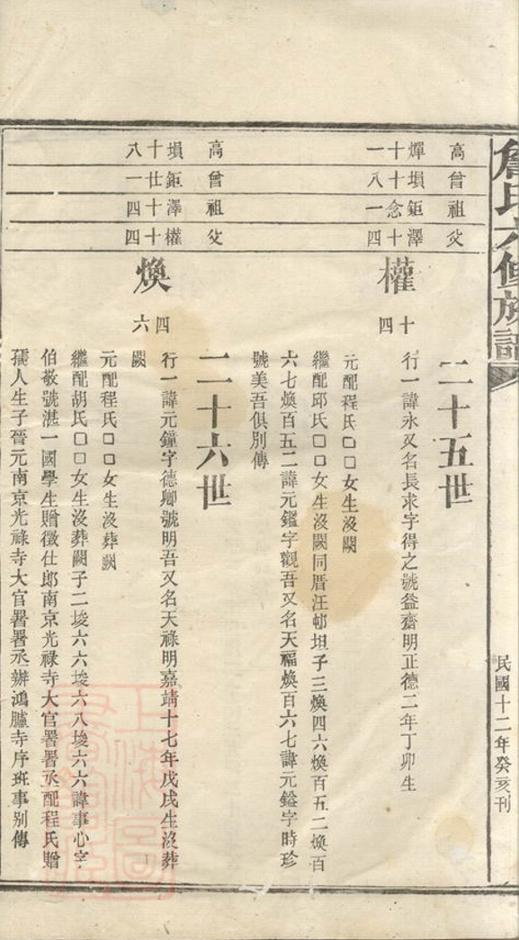 詹氏六修族譜
民國十二年癸亥刊
二十五世
高 煇十一
曾 塤十八
祖 鉅念一
父 澤十四
權十四
行一諱永又名長求字得之號益齋明正德二年丁卯生
元配程氏□□女生沒闕
繼配邱氏□□女生沒闕同厝汪邨坦子三煥四六煥百五二煥百
六七煥百五二諱元鑑字觀吾又名天福煥百六七諱元鎰字時珍
號美吾俱別傳
二十六世
高 塤十八
曾 鉅廿一
祖 澤十四
父 權十四
煥四六
行一諱元鐘字德卿號明吾又名天祿明嘉靖十七年戊戌生沒葬
闕
元配程氏□□女生沒葬闕
繼配胡氏□□女生沒葬闕子二埈六六埈六八埈六六諱事心字
伯敬號湛一國學生贈徵仕郎南京光祿寺大官署署丞配程氏贈
孺人生子晉元南京光祿寺大官署署丞辦鴻臚寺序班事別傳